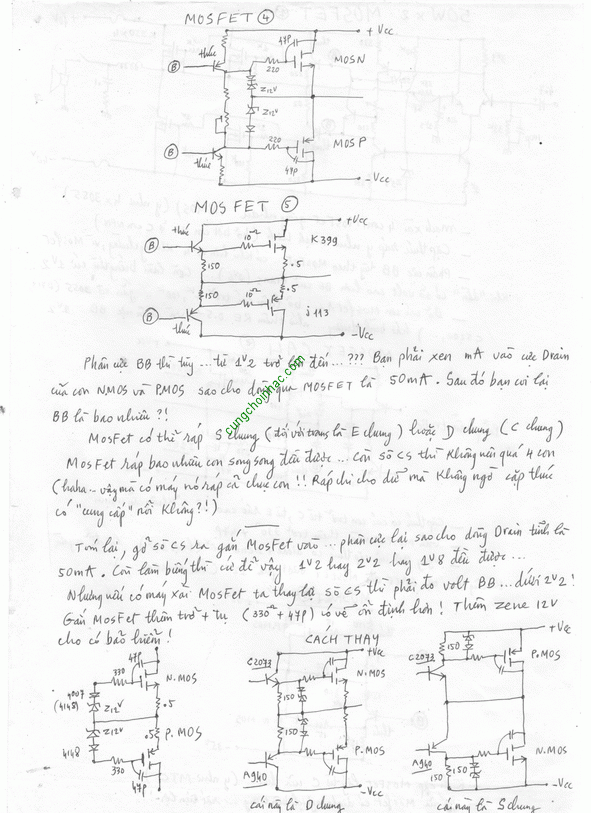 MOSFET ④
+Vcc
47P
thúc
B
220
MOSN
Z12V
Z12V
220
MOS P
B
thúc
47P
-Vcc
MOSFET ⑤
+Vcc
B
thúc
10Ω
K399
150
.5
150
10Ω
.5
B
thúc
j113
-Vcc
Phân cực BB thì tùy... từ 1V2 trở lên đến...??? Bạn phải xen mA vào cực Drain
của con NMOS và PMOS sao cho dòng qua MOSFET là 50mA. Sau đó bạn coi lại
BB là bao nhiêu ?!
cungchoinhac.com
MosFet có thể ráp S chung (đối với trans là E chung) hoặc D chung (C chung)
MosFet ráp bao nhiêu con song song đều được... còn sò CS thì không nên quá 4 con
(haha.. vậy mà có máy nó ráp cả chục con !! Ráp chi cho dữ mà không ngờ cặp thúc
có "cung cấp" nổi không?!)
Tóm lại, gỡ sò CS ra gắn MosFet vào... phân cực lại sao cho dòng Drain tĩnh là
50mA. Còn làm biếng thì cứ để vậy 1V2 hay 2V2 hay 1V8 đều được...
Nhưng nếu có máy xài MosFet ta thay lại sò CS thì phải đo volt BB... dưới 2V2!
Gắn MosFet thêm trở + tụ (330Ω + 47P) có vẻ ổn định hơn! Thêm zene 12V
cho có bảo hiểm!
CÁCH THAY
47P
330
N.MOS
4007
(4148)
Z12V
.5
Z12V
.5
P.MOS
4148
330
47P
+Vcc
C2073
N.MOS
150
150
P.MOS
A940
-Vcc
cái này là D chung
+Vcc
C2073
150
P.MOS
A940
150
150
N.MOS
-Vcc
cái này là S chung